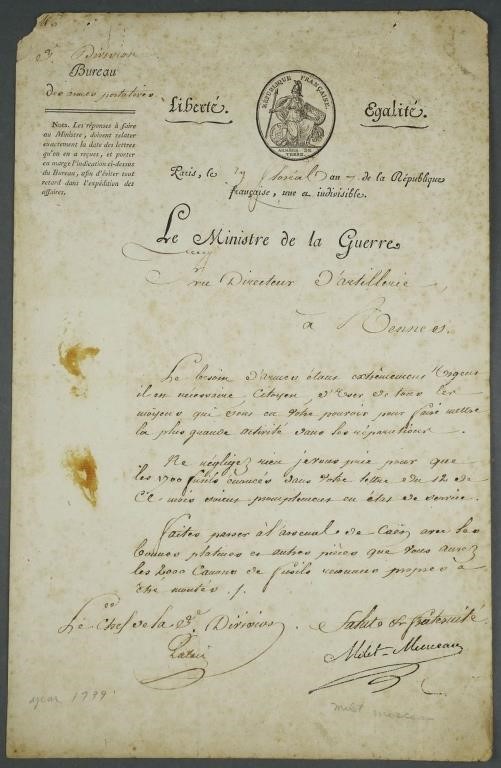 2e. Division
Bureau
des armes portatives
Nota. Les réponses à faire
au Ministre, doivent relater
exactement la date des lettres
qu'on en a reçues, et porter
en marge l'indication ci-dessus
du Bureau, afin d'éviter tout
retard dans l'expédition des
affaires.
Liberté.
RÉPUBLIQUE FRANÇAISE.
ARMÉES DE
TERRE.
Egalité.
Paris, le floréal an 7 de la République
française, une et indivisible.
Le Ministre de la Guerre
Au Directeur d'artillerie
à Rennes.
Le besoin d'armes étant extrêmement Urgent
il est nécessaire, Citoyen, d'User de tous les
moyens qui sont en votre pouvoir pour faire mettre
la plus grande activité dans les réparations.
Ne négligez rien je vous prie pour que
les 1700 fusils énoncés dans votre lettre du 12 de
ce mois soient promptement en état de service.
Faites passer à l'arsenal de Caën avec les
bonnes platines et autres pièces que vous aurez
les 2000 Canons de fusils reconnus propres à
être montés ./.
Le Chef de la 2e. Division
Salut et fraternité
Milet-Mureau
year 1799
milet mureau